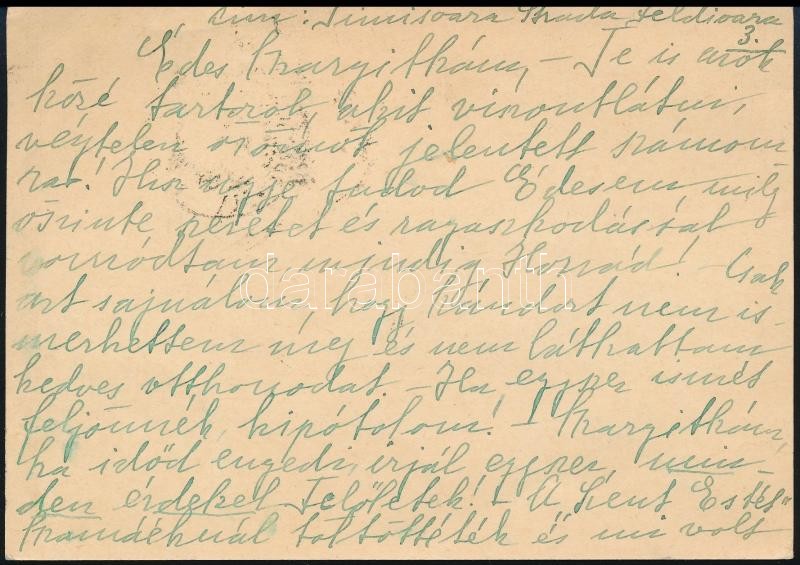 cím: Timisoara Strada Feldioara
3.
Édes Margitkám, – Te is azok
közé tartozol, akit viszontlátni,
végtelen örömöt jelentett számom
ra! Hisz ugye tudod Édesem mily
őszinte szeretet és ragaszkodással
vonzódtam mindig Hozzád! – Csak
azt sajnálom, hogy Nándort nem is-
merhettem meg és nem láthattam
kedves otthonodat. – Ha egyszer ismét
feljönnék, kipótolom! – Margitkám,
ha időd engedi, írjál egyszer, min-
den érdekel Felőletek! – A Szent Estét
Mamáéknál töltöttéték és mi volt
darabanth